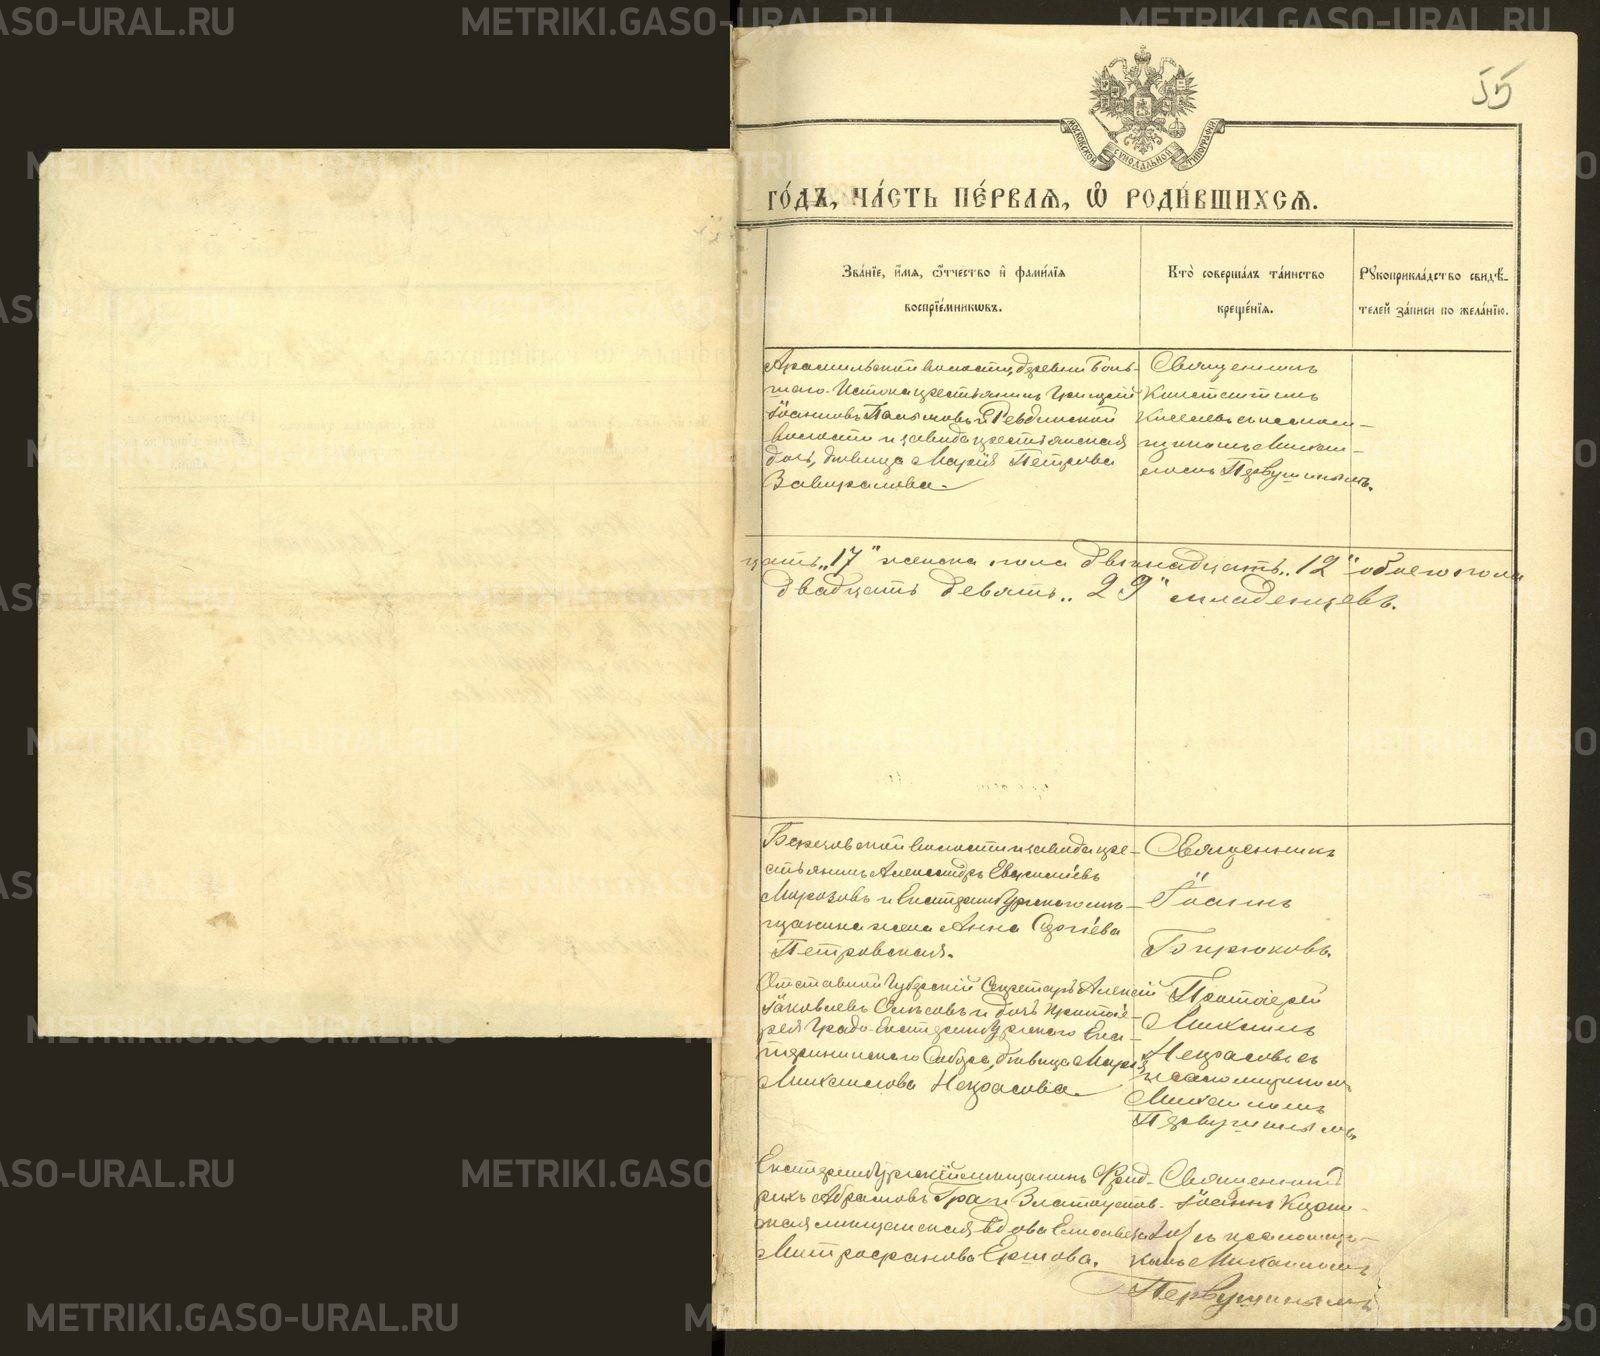 55
МОСКОВСКОЙ СѴНОДАЛЬНОЙ ТИПОГРАФІИ
го́дъ, ча́сть пе́рваѧ, ѡ҆ роди́вшихсѧ.
Зва́нїе, и҆́мѧ, ѻ҆́тчество и҆ фами́лїѧ
воспрїе́мникѡвъ.
Кто̀ соверша́лъ та́инство
креще́нїѧ.
Рꙋкоприкла́дство свидѣ́-
телей за́писи по жела́нїю.
Арамильской волости, деревни Боль-
шаго Истока крестьянинъ Григорій
Іоанновъ Палымовъ и Ревдинской
волости и завода крестьянская
дочь, дѣвица Марія Петрова
Завиралова.
Священникъ
Константинъ
съ псалом-
щикомъ Михаи-
ломъ Первушинымъ.
цать „17" женска пола двѣнадцать „12" обоего пола
двадцать девять „29" младенцевъ.
Березовской волости и завода кре-
стьянинъ Александръ Евгеніевъ
Морозовъ и Екатеринбургскаго мѣ-
щанина жена Анна Сергіева
Петровская.
Священникъ
Іоаннъ
Бирюковъ.
Отставной Губернскій Секретарь Алексій
Іаковлевъ и дочь протоіе-
рея Градо-Екатеринбургскаго Ека-
терининскаго Собора, дѣвица Марія
Михаилова Некрасова.
Протоіерей
Михаилъ
Некрасовъ съ
псаломщикомъ
Михаиломъ
Первушинымъ.
Екатеринбургскій мѣщанинъ Фрид-
рихъ Абрамовъ Гра и Златоустов-
ская мѣщанская вдова Елисавета
Митрофанова Ершова.
Священникъ
Іоаннъ
съ псаломщи-
комъ Михаиломъ
Первушинымъ
METRIKI.GASO-URAL.RU